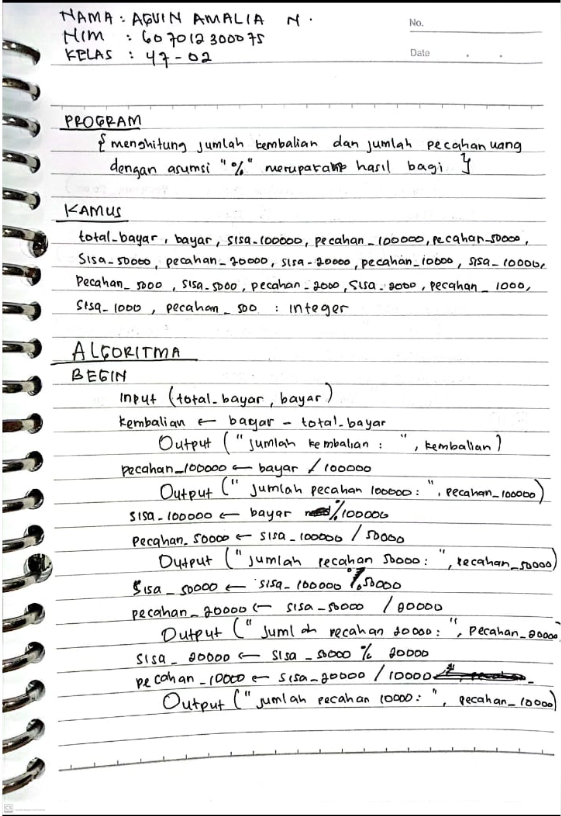 NAMA : AGUIN AMALIA N.
NIM : 607012300075
KELAS : 47-02
No.
Date
PROGRAM
{ menghitung jumlah kembalian dan jumlah pecahan uang
dengan asumsi "%" merupakan hasil bagi }
KAMUS
total_bayar, bayar, sisa_100000, pecahan_100000, pecahan_50000,
Sisa_50000, pecahan_20000, sisa_20000, pecahan_10000, sisa_10000,
Pecahan_5000, sisa_5000, pecahan_2000, sisa_2000, pecahan_1000,
Sisa_1000, pecahan_500 : integer
ALGORITMA
BEGIN
Input (total_bayar, bayar)
kembalian ← bayar - total_bayar
Output ("jumlah kembalian : ", kembalian)
pecahan_100000 ← bayar / 100000
Output ("jumlah pecahan 100000 : ", pecahan_100000)
sisa_100000 ← bayar % 100000
pecahan_50000 ← sisa_100000 / 50000
Output ("jumlah pecahan 50000 : ", pecahan_50000)
Sisa_50000 ← sisa_100000 % 50000
pecahan_20000 ← sisa_50000 / 20000
Output ("jumlah pecahan 20000 : ", pecahan_20000
sisa_20000 ← sisa_50000 % 20000
pecahan_10000 ← sisa_20000 / 10000
Output ("jumlah pecahan 10000 : ", pecahan_10000)